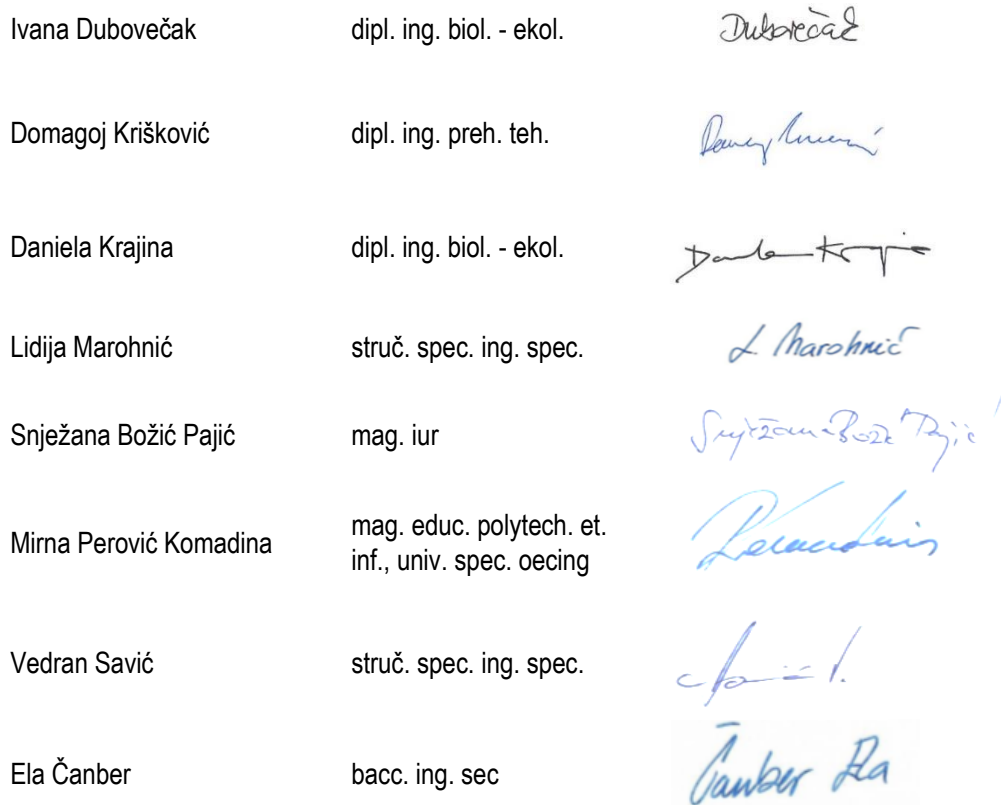 Ivana Dubovečak dipl. ing. biol. - ekol. Dubovečak
Domagoj Krišković dipl. ing. preh. teh.
Daniela Krajina dipl. ing. biol. - ekol.
Lidija Marohnić struč. spec. ing. spec. L Marohnić
Snježana Božić Pajić mag. iur Snježana Božić Pajić
Mirna Perović Komadina mag. educ. polytech. et.
inf., univ. spec. oecing
Vedran Savić struč. spec. ing. spec.
Ela Čanber bacc. ing. sec Čanber Ela